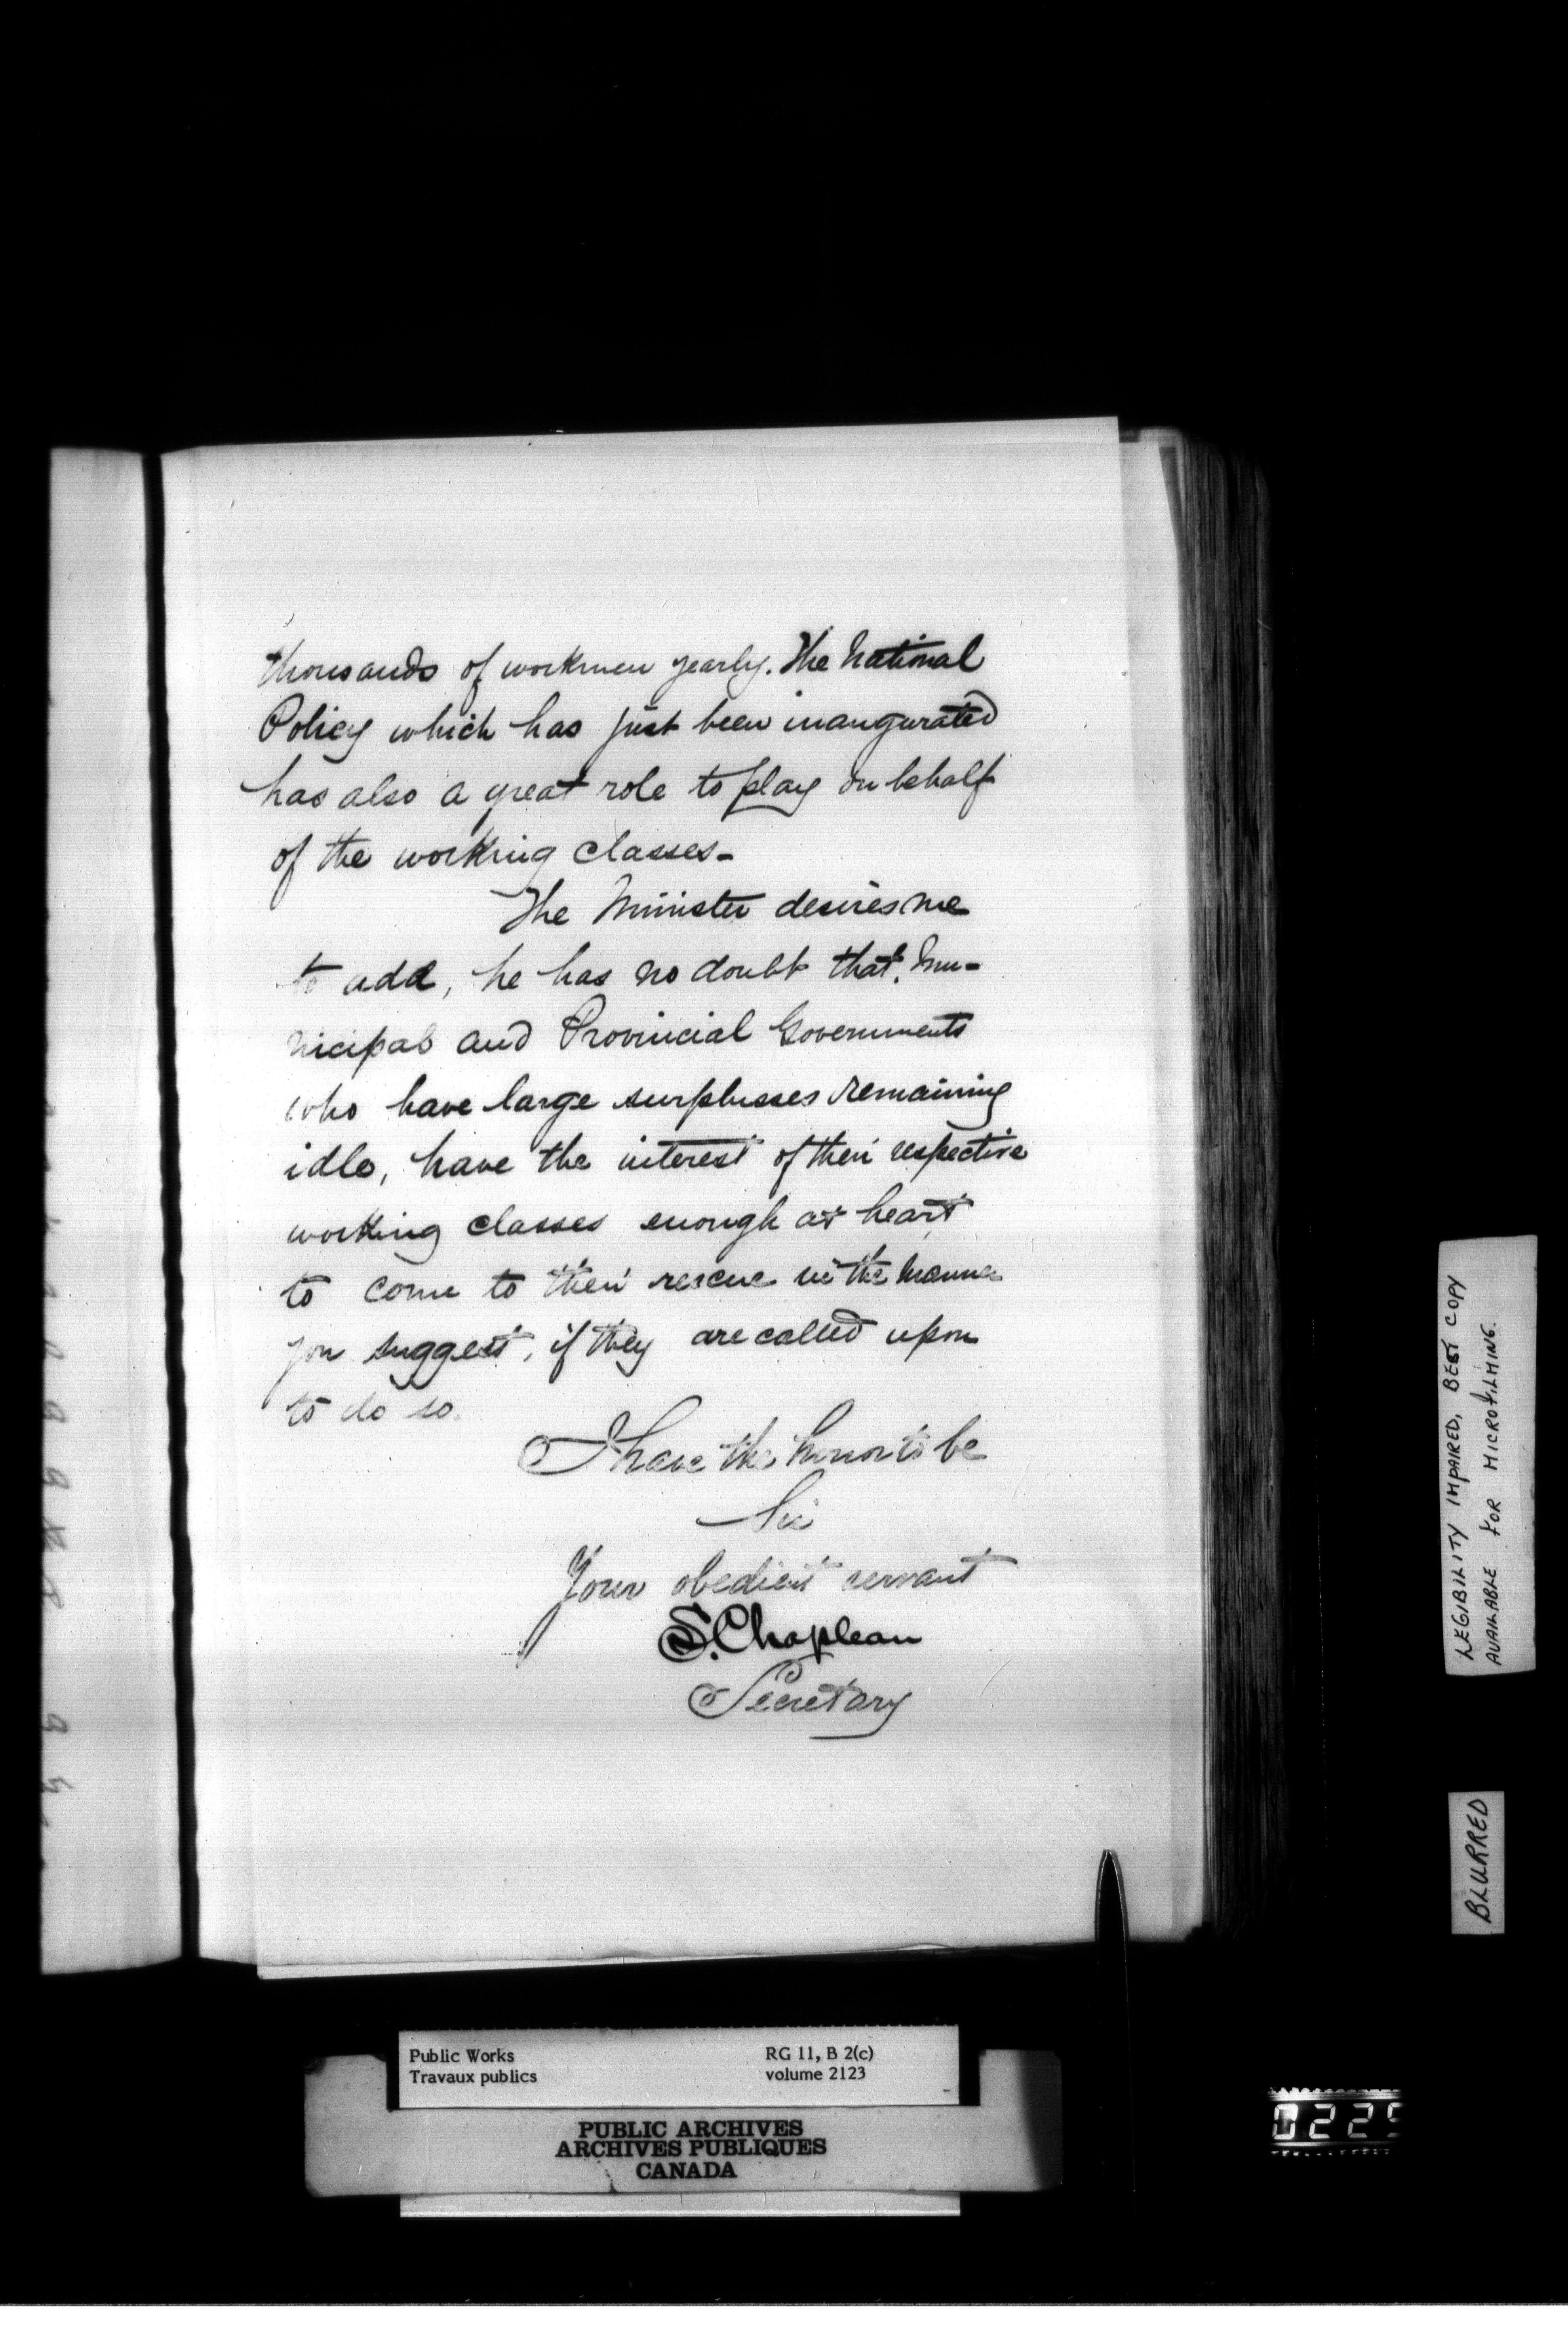 thousands of workmen yearly. The National
Policy which has just been inaugurated
has also a great role to play on behalf
of the working classes-
The Minister desires me
to add, he has no doubt that, Mu-
nicipal and Provincial Governments
who have large surplusses remaining
idle, have the interest of their respective
working classes enough at heart
to come to their rescue in the manner
you suggest, if they are called upon
to do so.
I have the honor to be
Sir
Your obedient servant
S. Chapleau
Secretary
LEGIBILITY IMPAIRED, BEST COPY
AVAILABLE FOR MICROFILMING.
BLURRED
Public Works
Travaux publics
RG 11, B 2(c)
volume 2123
PUBLIC ARCHIVES
ARCHIVES PUBLIQUES
CANADA
0225